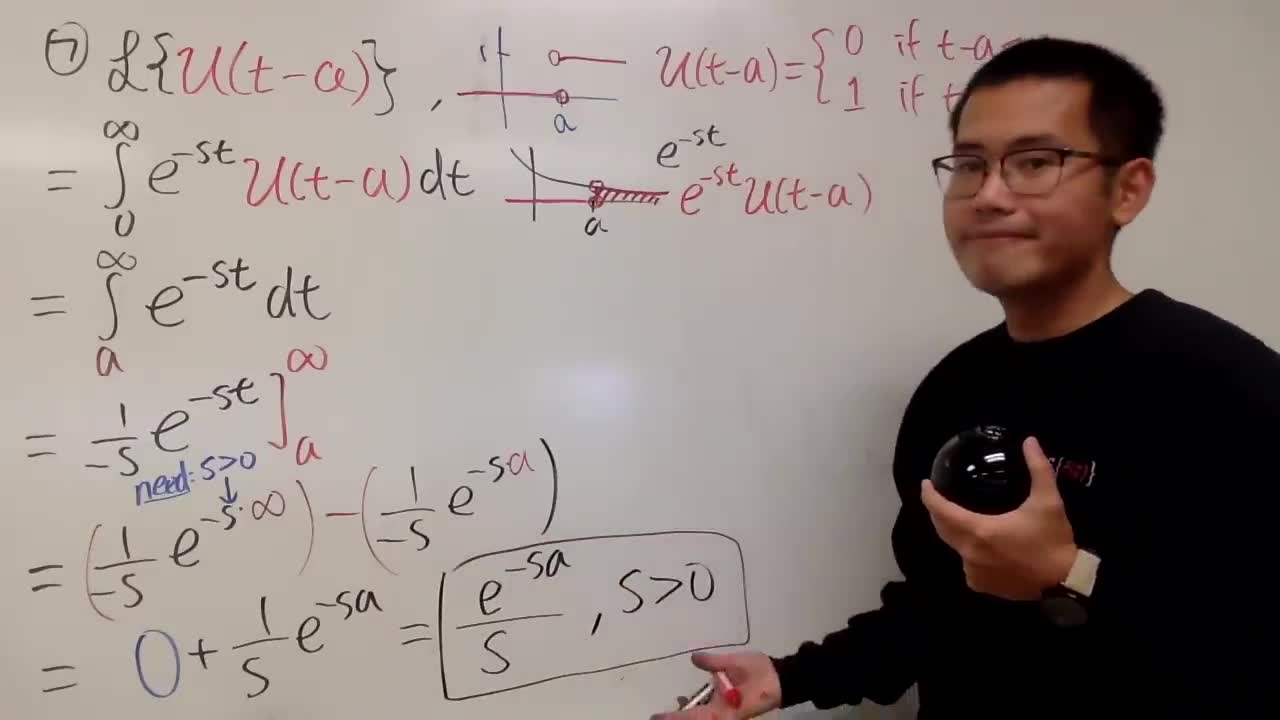 ⑦ ℒ{U(t-a)}, if a U(t-a)={0 if t-a
1 if t
= ∫₀^∞ e^{-st} U(t-a) dt a e^{-st} e^{-st}U(t-a)
= ∫ₐ^∞ e^{-st} dt
= 1/-s e^{-st} ]ₐ^∞
need: s>0
= (1/-s e^{-s·∞}) - (1/-s e^{-sa})
= 0 + 1/s e^{-sa} = e^{-sa}/s , s>0